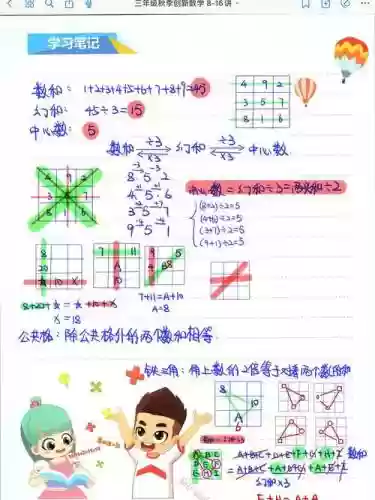 三年级秋季创新数学 8-16讲
学习笔记
数和: 1+2+3+4+5+6+7+8+9=45
幻和: 45÷3=15
中心数: 5
4 9 2
3 5 7
8 1 6
数和 ÷3 ×3 幻和 ÷3 ×3 中心数
8 5 2
4 5 6
3 5 7
9 5 1
中心数=幻和÷3=两数和÷2
(8+2)÷2=5
(4+6)÷2=5
(3+7)÷2=5
(9+1)÷2=5
8
20
10 X
7 11
A
10
9 5
7+11=A+10
A=8
X=18
公共格: 除公共格外的两个数和相等.
铁三角: 角上数的2倍等于对边两个数的和
8
10
A
b
A B C
数和
幻和×3